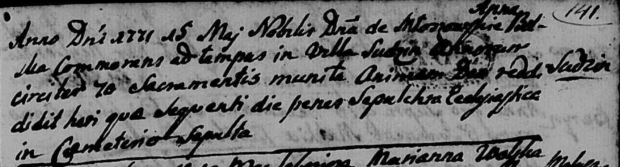 Anna 141.
Anno Dni 1771 15 Maj Nobilis Dna de
commorans ad tempus in Villa Sudzin Annorum
circiter 70 Sacramentis munita Animam Deo red Sudzin
didit hora qua sequenti die penes Sepulchra
in Cæmeterio Sepulta
Marianna